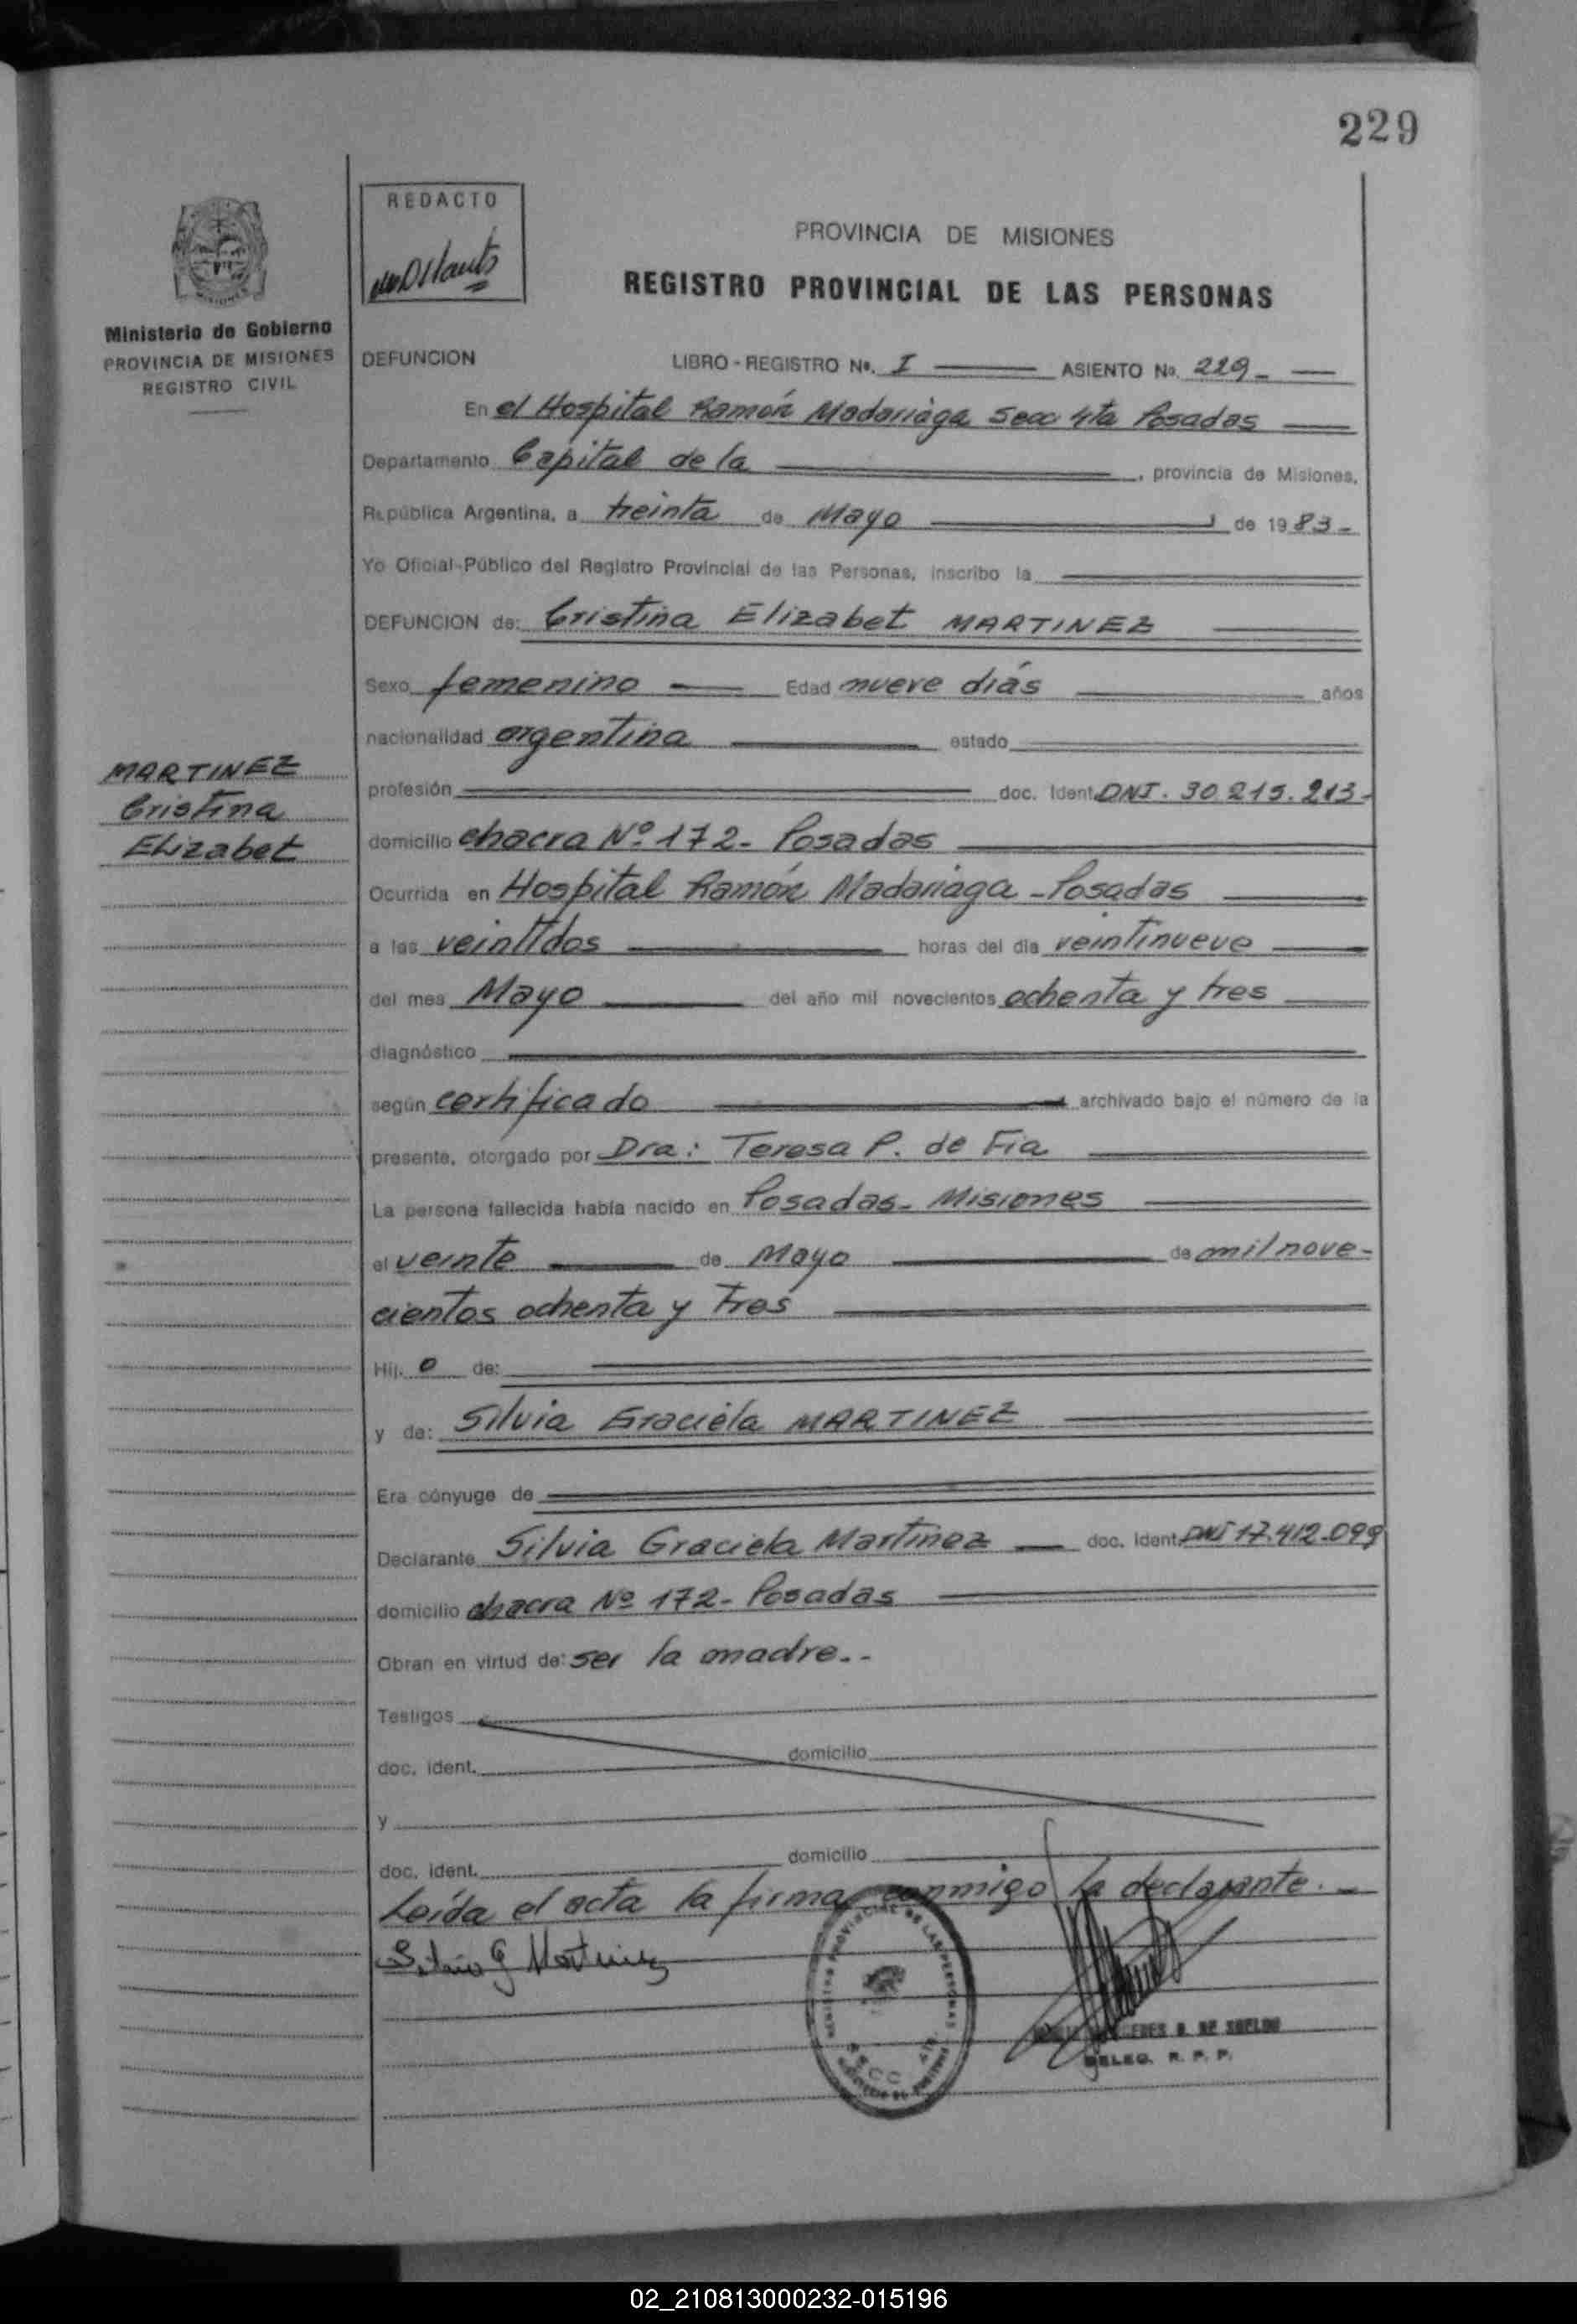 229
REDACTO
PROVINCIA DE MISIONES
REGISTRO PROVINCIAL DE LAS PERSONAS
Ministerio de Gobierno
PROVINCIA DE MISIONES
REGISTRO CIVIL
DEFUNCION LIBRO - REGISTRO No. I ASIENTO No. 229
En el Hospital Ramón Madariaga Secc 4ta Posadas
Departamento Capital de la , provincia de Misiones,
República Argentina, a treinta de Mayo de 1983-
Yo Oficial-Público del Registro Provincial de las Personas, inscribo la
DEFUNCION de: Cristina Elizabet MARTINEZ
Sexo femenino Edad nueve días años
nacionalidad argentina estado
MARTINEZ
Cristina
Elizabet
profesión doc. Ident. DNI. 30.215.213-
domicilio chacra Nº 172- Posadas
Ocurrida en Hospital Ramón Madariaga - Posadas
a las veintidos horas del día veintinueve
del mes Mayo del año mil novecientos ochenta y tres
diagnóstico
según certificado archivado bajo el número de la
presente, otorgado por Dra: Teresa P. de Fia
La persona fallecida había nacido en Posadas- Misiones
el veinte de Mayo de mil nove-
cientos ochenta y tres
Hij. o de:
y de: Silvia Graciela MARTINEZ
Era cónyuge de
Declarante Silvia Graciela Martinez doc. Ident. DNI 17.412.099
domicilio chacra Nº 172- Posadas
Obran en virtud de: ser la madre.-
Testigos
doc. ident. domicilio
y
doc. ident. domicilio
Leída el acta la firma conmigo la declarante.-
Silvia G Martinez
REGISTRO PROVINCIAL DE LAS PERSONAS
DELEG. R. P. P.
02_210813000232-015196